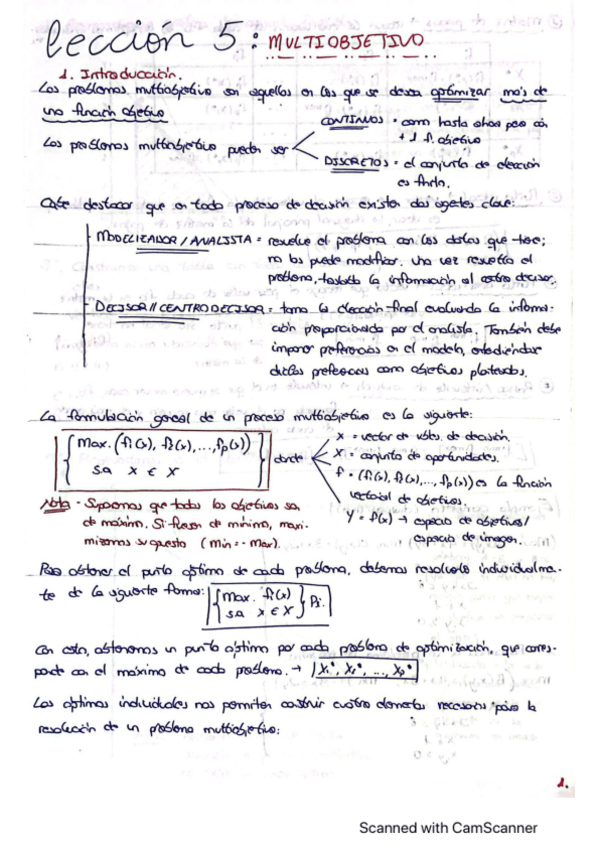 Lección 5: MULTIOBJETIVO
1. Introducción.
Los problemas multiobjetivo son aquellos en los que se desea optimizar más de
una función objetivo
Los problemas multiobjetivo pueden ser
CONTINUOS = como hasta ahora pero con
+ 1 f. objetivo
DISCRETOS = el conjunto de elección
es finito.
Cabe destacar que en todo proceso de decisión existen dos agentes clave:
MODELIZADOR / ANALISTA = resuelve el problema con los datos que tiene;
no los puede modificar. Una vez resuelto el
problema, traslada la información al centro decisor.
DECISOR // CENTRO DECISOR = toma la elección final evaluando la informa-
ción proporcionada por el analista; También debe
imponer preferencias en el modelo, entendiéndose
dichas preferencias como objetivos planteados.
La formulación general de un proceso multiobjetivo es la siguiente:
{ Max. (f₁(x), f₂(x), ..., fp(x))
s.a x ∈ X } donde
x = vector de vbles. de decisión.
X = conjunto de oportunidades.
f = (f₁(x), f₂(x), ..., fp(x)) es la función
vectorial de objetivos.
Y = f(x) → espacio de objetivos/
espacio de imagen.
Nota - Suponemos que todos los objetivos son
de máximo. Si fuesen de mínimo, maxi-
mizamos su opuesto (Min = - Max).
Para obtener el punto óptimo de cada problema, debemos resolverlo individualmen-
te de la siguiente forma: { Max. fi(x)
s.a x ∈ X } Pi.
Con esto, obtenemos un punto óptimo por cada problema de optimización, que corres-
ponde con el máximo de cada problema. → X₁*, X₂*, ..., Xp*
Los óptimos individuales nos permiten construir cuatro elementos necesarios para la
resolución de un problema multiobjetivo:
1.
Scanned with CamScanner